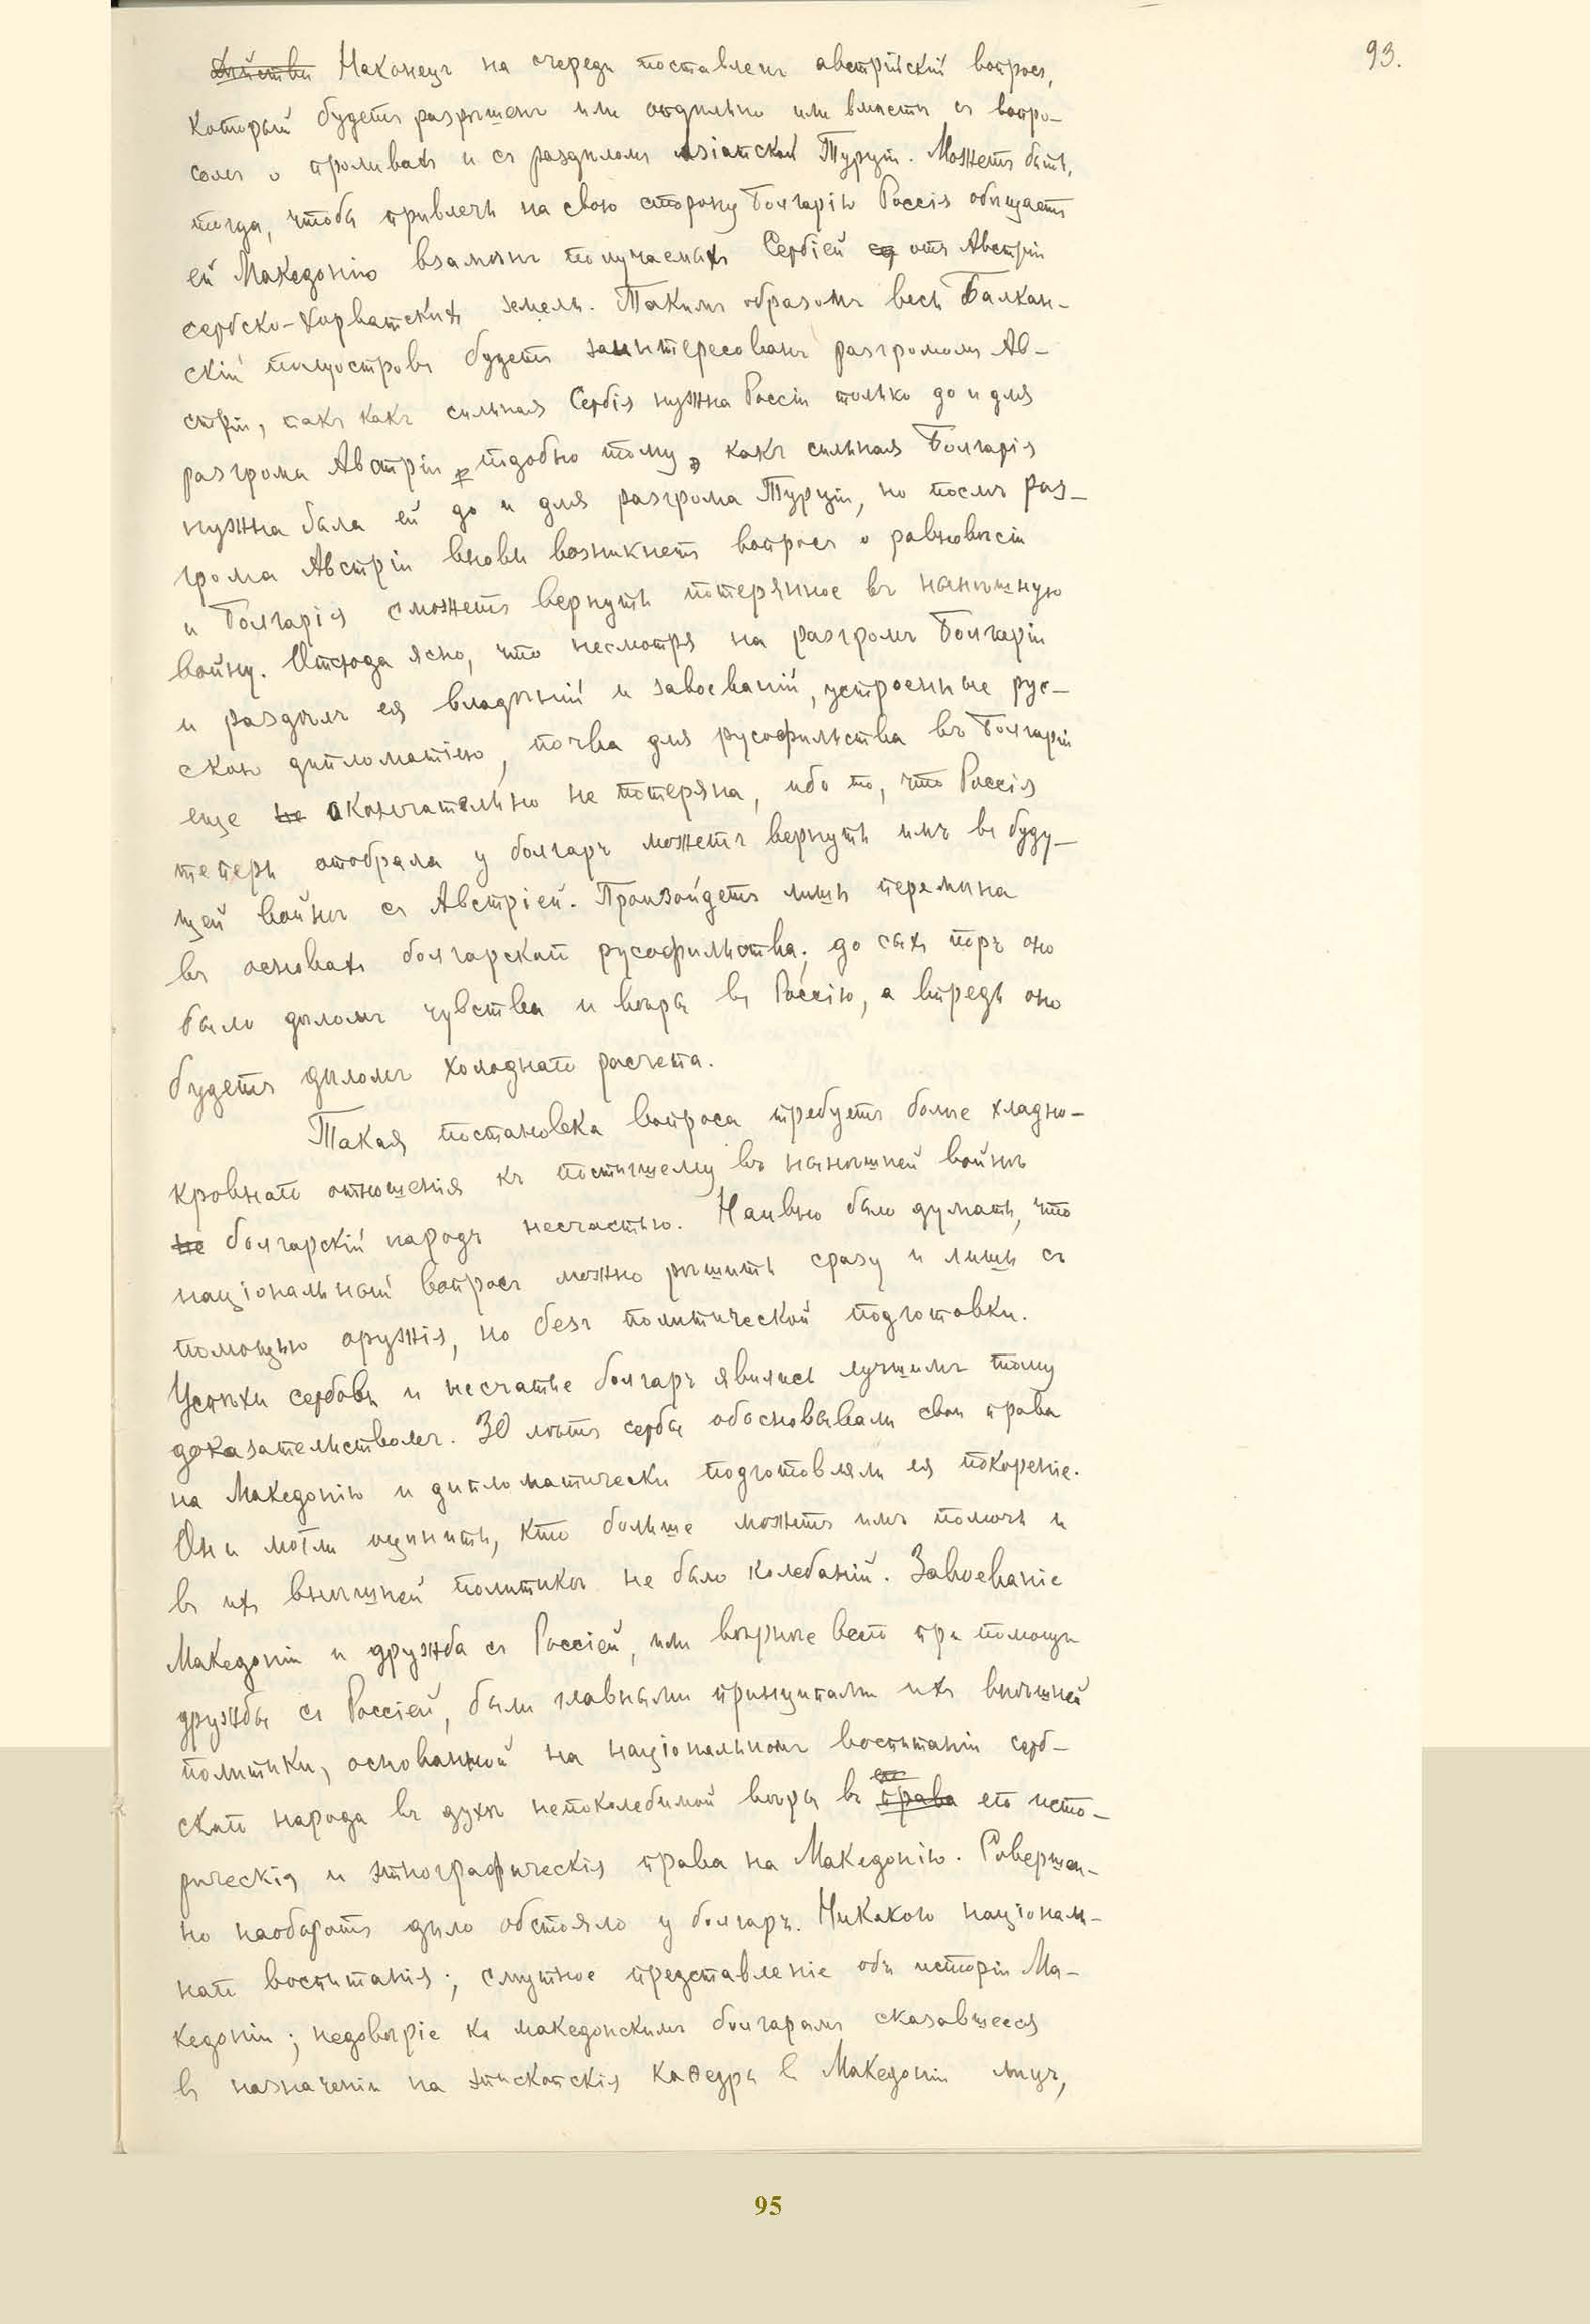 93.
Наконецъ на очереди поставленъ австрійскій вопросъ,
который будетъ разрѣшенъ или отдѣльно или вмѣстѣ съ вопро-
сомъ о проливахъ и съ раздѣломъ Азіатской Турціи. Можетъ быть,
тогда, чтобы привлечь на свою сторону Болгарію Россія обѣщаетъ
ей Македонію взамѣнъ получаемыхъ Сербіей отъ Австріи
сербско-хорватскихъ земель. Такимъ образомъ весь Балкан-
скій полуостровъ будетъ заинтересованъ разгромомъ Ав-
стріи, такъ какъ сильная Сербія нужна Россіи только до и для
разгрома Австріи, подобно тому, какъ сильная Болгарія
нужна была ей до и для разгрома Турціи, но послѣ раз-
грома Австріи вновь возникнетъ вопросъ о равновѣсіи
и Болгарія сможетъ вернуть потерянное въ нынѣшнюю
войну. Отсюда ясно, что несмотря на разгромъ Болгаріи
и раздѣлъ ея владѣній и завоеваній, устроенные рус-
скою дипломатіею, почва для русофильства въ Болгаріи
еще не окончательно не потеряна, ибо то, что Россія
теперь отобрала у болгаръ можетъ вернуть имъ въ буду-
щей войнѣ съ Австріей. Произойдетъ лишь перемѣна
въ основахъ болгарскаго русофильства; до сихъ поръ оно
было дѣломъ чувства и вѣры въ Россію, а впредь оно
будетъ дѣломъ холоднаго расчета.
Такая постановка вопроса требуетъ болѣе хладно-
кровнаго отношенія къ постигшему въ нынѣшней войнѣ
не болгарскій народъ несчастью. Наивно было думать, что
національный вопросъ можно рѣшить сразу и лишь съ
помощью оружія, но безъ политической подготовки.
Успѣхи сербовъ и несчастье болгаръ явились лучшимъ тому
доказательствомъ. 30 лѣтъ сербы обосновывали свои права
на Македонію и дипломатически подготовляли ея покореніе.
Они могли оцѣнить, кто больше можетъ имъ помочь и
въ ихъ внѣшней политикѣ не было колебаній. Завоеваніе
Македоніи и дружба съ Россіей, или вѣрнѣе всего при помощи
дружбы съ Россіей, были главными принципами ихъ внѣшней
политики, основанной на національномъ воспитаніи серб-
скаго народа въ духѣ непоколебимой вѣры въ права его исто-
рическія и этнографическія права на Македонію. Совершен-
но наоборотъ дѣло обстояло у болгаръ. Никакого націоналі-
наго воспитанія; смутное представленіе объ исторіи Ма-
кедоніи; недовѣріе къ македонскимъ болгарамъ сказавшееся
въ назначеніи на епископскія каѳедры въ Македоніи лицъ,
95